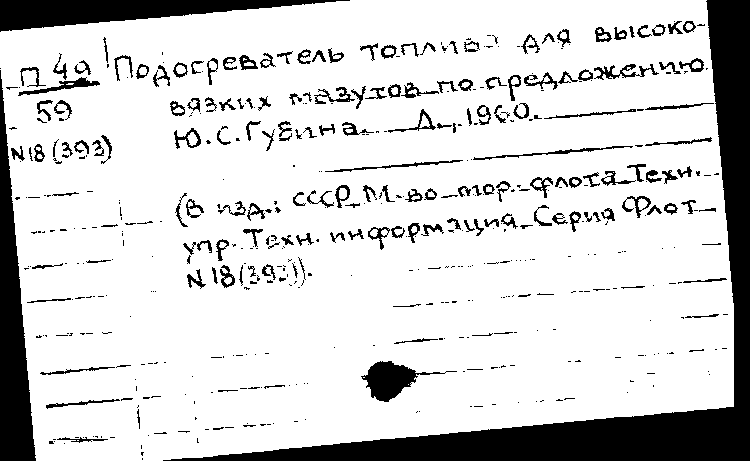 П 49 Подогреватель топлива для высоко-
59 вязких мазутов по предложению
N18 (393) Ю.С. Губина. Л., 1960.
(В изд.: СССР. М-во мор. флота. Техн.
упр. Техн. информация. Серия Флот
N 18 (393)).